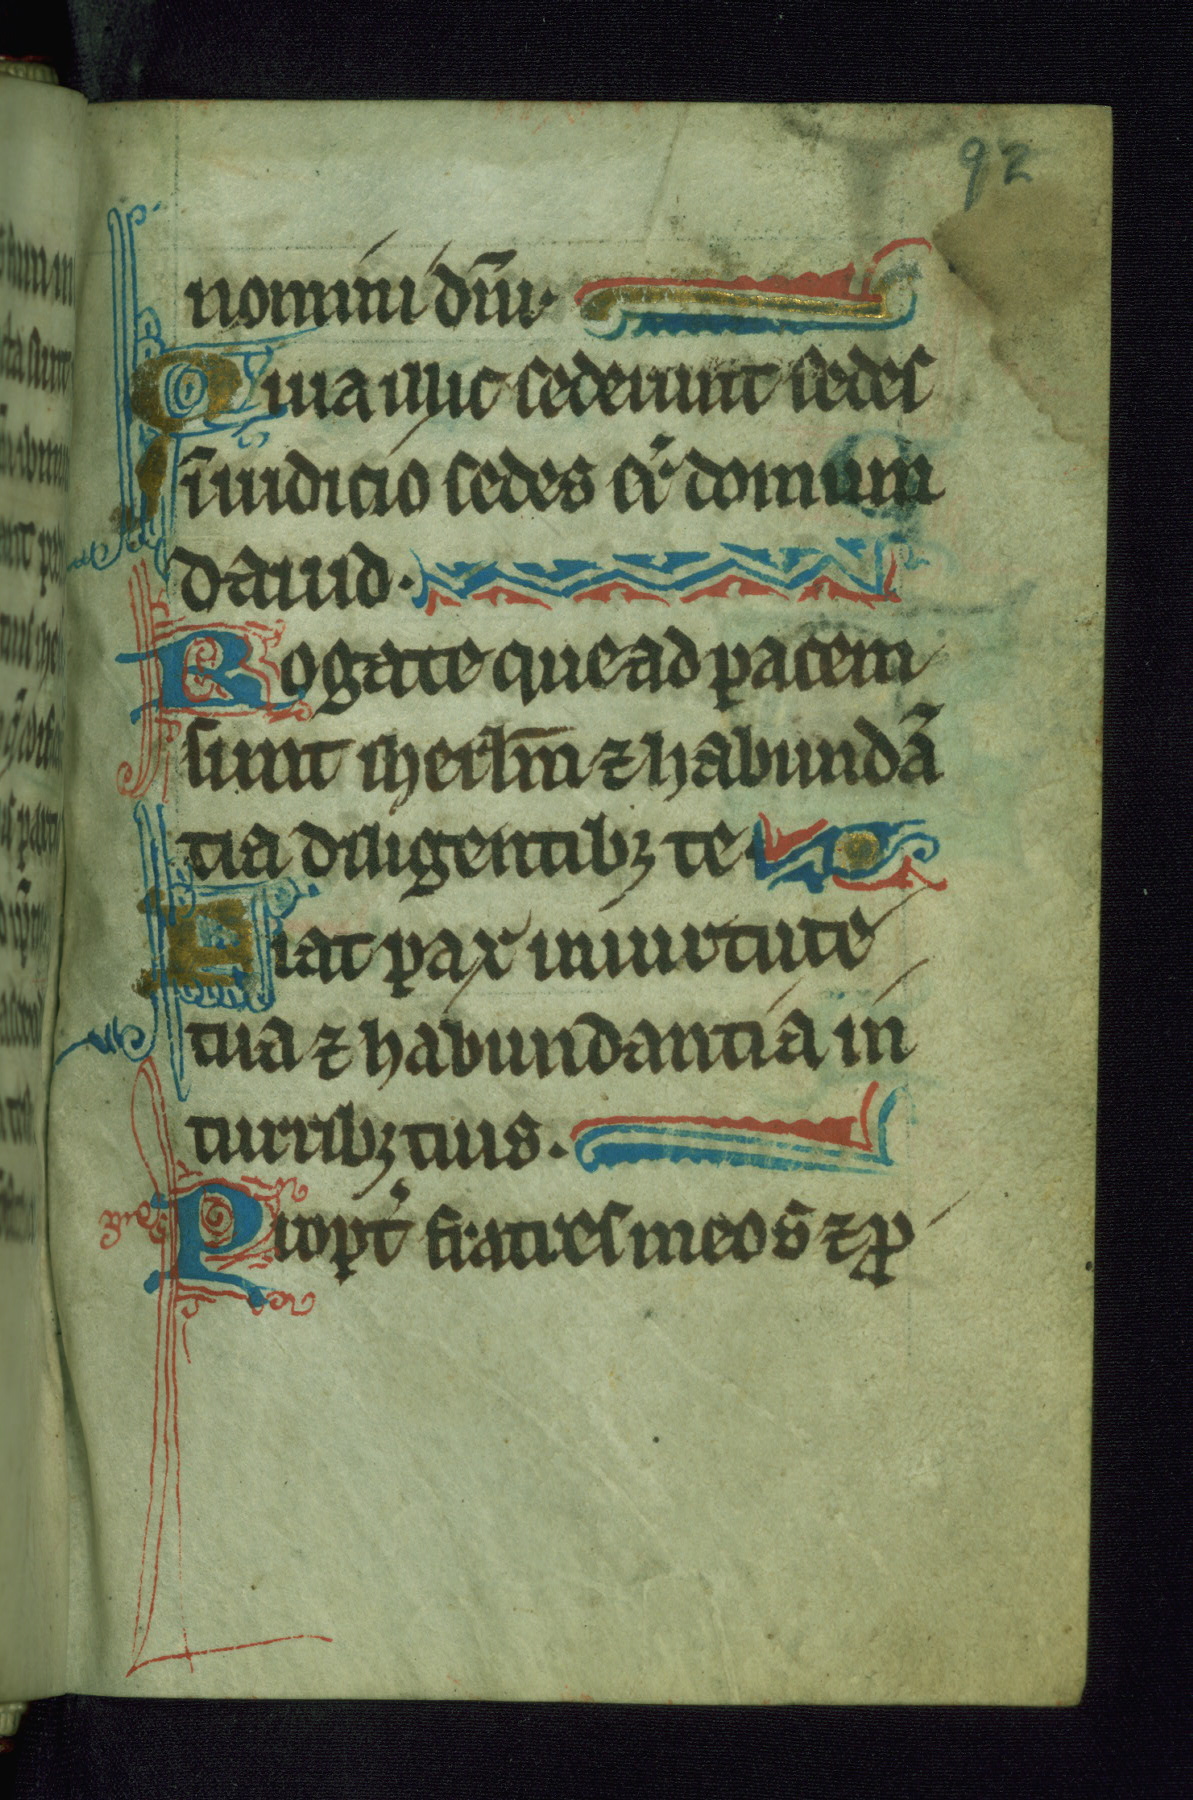 92
nomini dñi·
Quia illic sederunt sedes
ĩ iudicio sedes sr̃ domum
dauid·
Rogate que ad pacem
sunt iherl̃m ⁊ habundã
tia diligentibꝫ te·
Fiat pax in uirtute
tua ⁊ habundantia in
turribꝫ tuis·
Propt̾ fratres meos ⁊ ꝓ